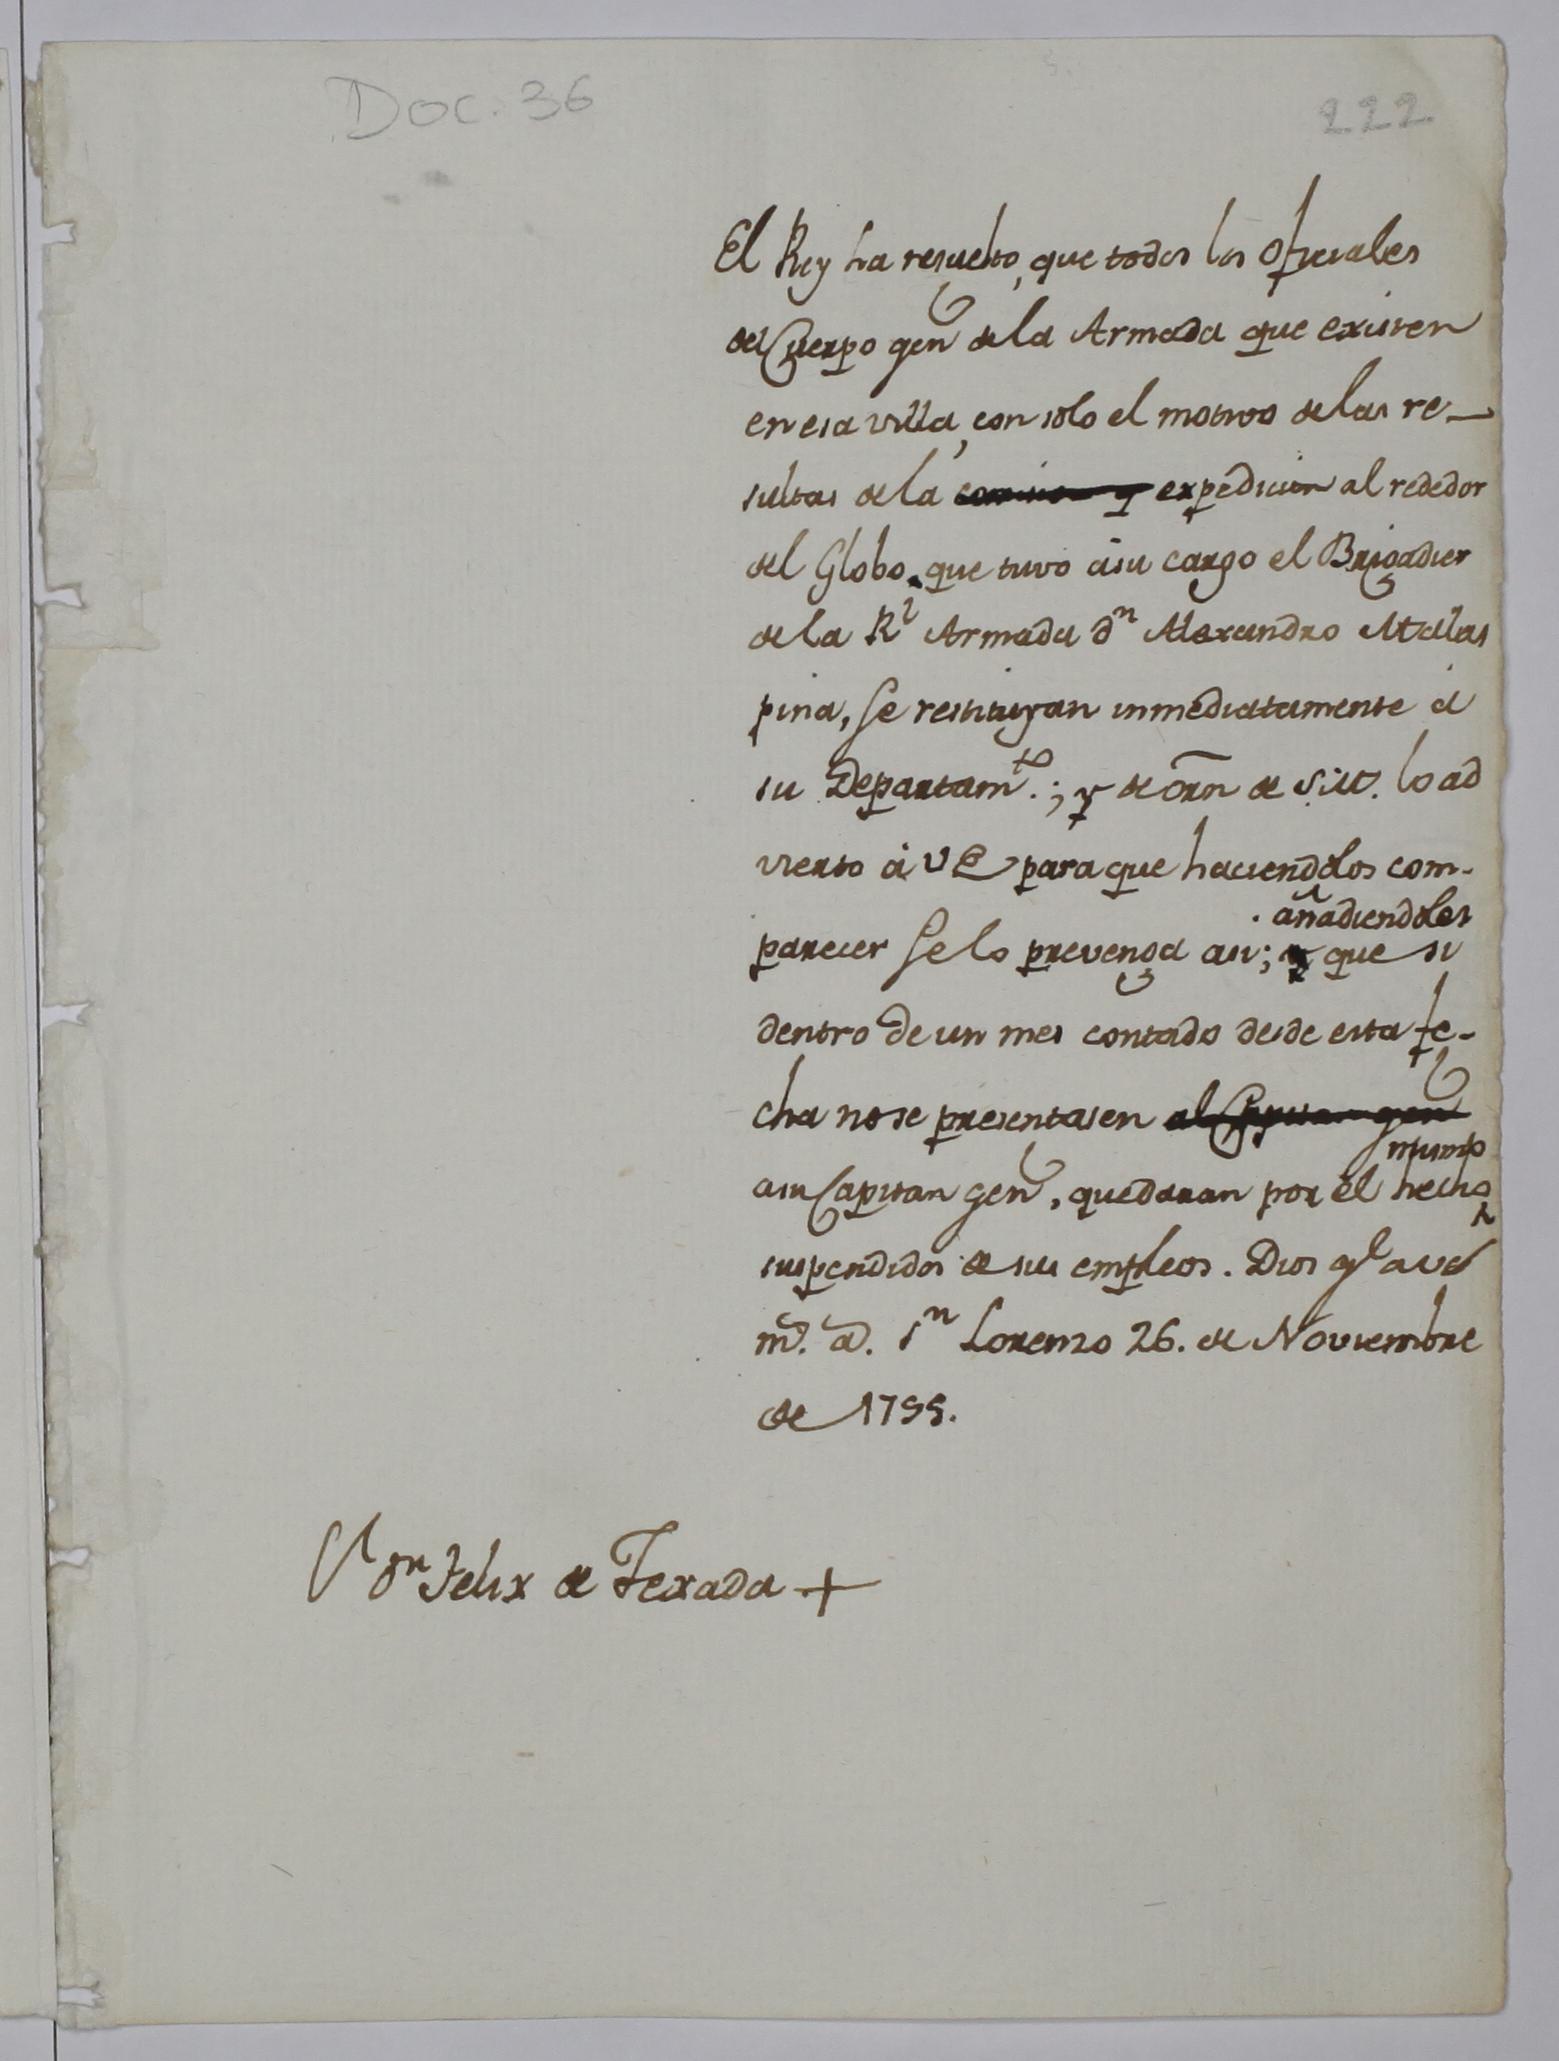 Doc. 36
222
El Rey ha resuelto, que todos los Oficiales
del Cuerpo gen de la Armada que existen
en esa villa, con solo el motivo de las re-
sultas de la comision y expedicion al rededor
del Globo que tuvo á su cargo el Brigadier
de la Rl Armada dn Alexandro Malas
pina, se restituyan inmediatamente á
su Departamto.; y de orn de S.M. lo ad
vierto á VE para que haciendolos com-
añadiendoles
parecer se lo prevenga asi; y que si
dentro de un mes contado desde esta fe-
cha no se presentasen al Capitan gen
mismo
a su Capitan gen, quedaran por el hecho
suspendidos de sus empleos. Dios gue a VE
ms. as. Sn Lorenzo 26. de Noviembre
de 1795.
Sor Dn Felix de Texada +